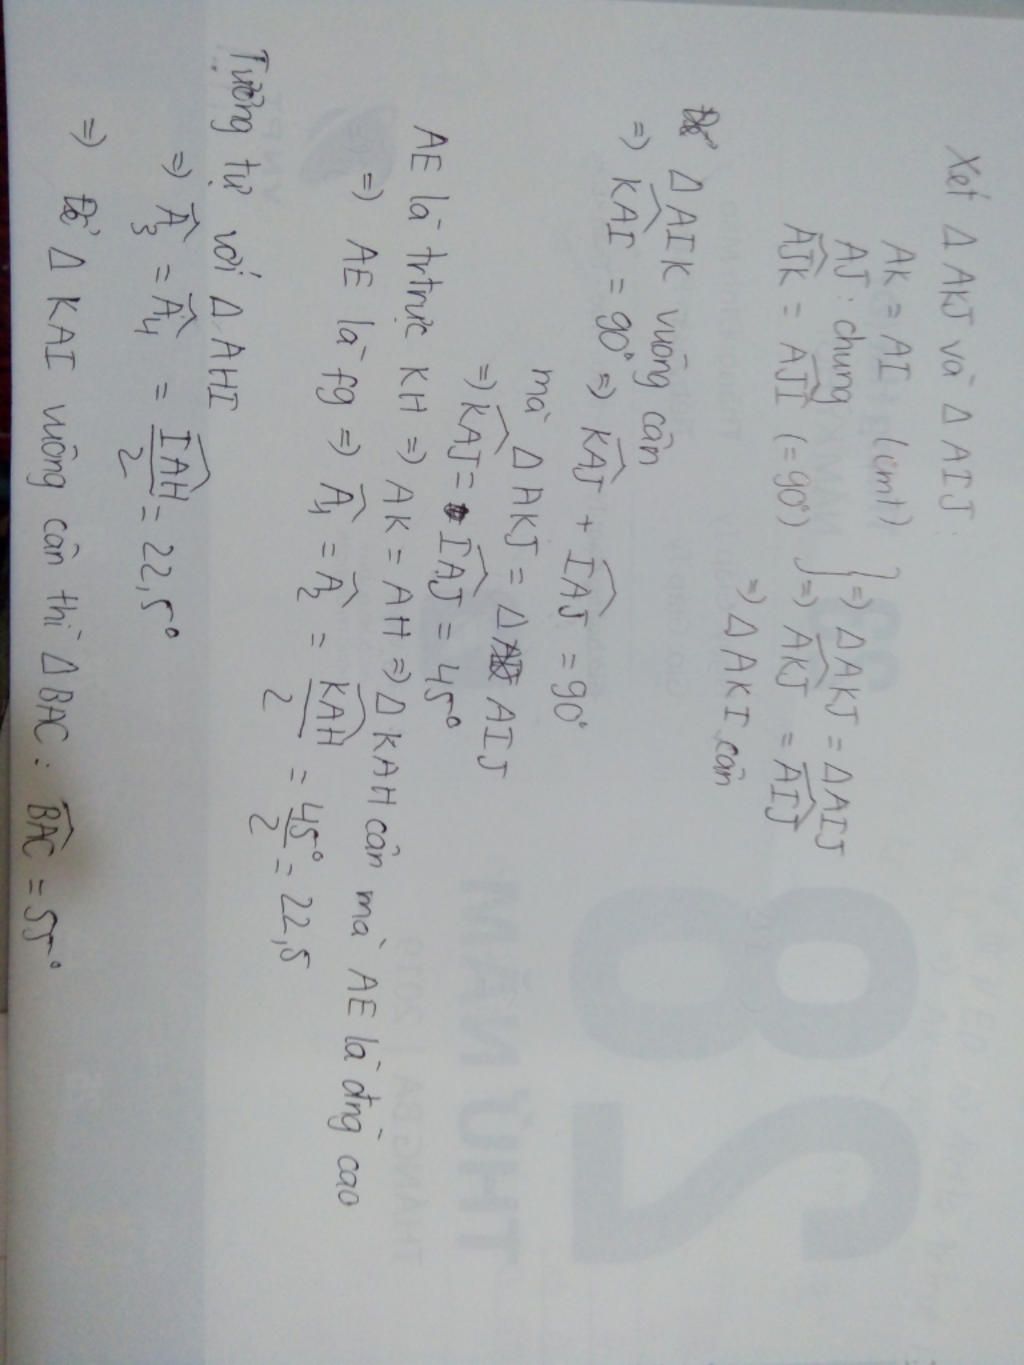 Xét Δ AKJ và Δ AIJ:
AK = AI (cmt)
AJ: chung
AJK = AJI (= 90°) } => Δ AKJ = Δ AIJ
=> AKJ = AIJ
=> Δ AKI cân
Để Δ AIK vuông cân
=> KAI = 90° => KAJ + IAJ = 90°
mà Δ AKJ = Δ AIJ
=> KAJ = IAJ = 45°
AE là tr trực KH => AK = AH => Δ KAH cân mà AE là đng cao
=> AE là fg => A1 = A2 = KAH/2 = 45°/2 = 22,5
Tương tự với Δ AHI
=> A3 = A4 = IAH/2 = 22,5°
=> Để Δ KAI vuông cân thì Δ BAC: BAC = 55°
28
MÃN ỨHT